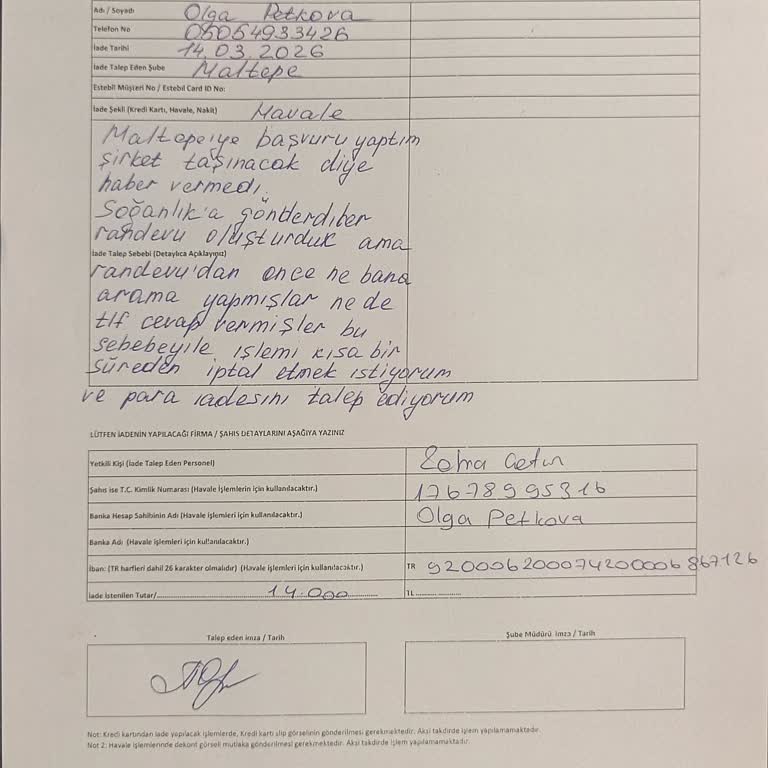 Adı / Soyadı Olga Petkova
Telefon No 05054933426
İade Tarihi 14.03.2026
İade Talep Eden Şube Maltepe
Estebil Müşteri No / Estebil Card ID No:
İade Şekli (Kredi Kartı, Havale, Nakit) Havale
Maltepe'ye başvuru yaptım
şirket taşınacak diye
haber vermedi.
Soğanlık'a gönderdiber
randevu oluşturduk ama
İade Talep Sebebi (Detaylıca Açıklayınız)
randevu'dan once ne bana
arama yapmışlar ne de
tlf cevap vermişler bu
sebebeyile işlemi kısa bir
süreden iptal etmek istiyorum
ve para iadesini talep ediyorum
LÜTFEN İADENİN YAPILACAĞI FİRMA / ŞAHIS DETAYLARINI AŞAĞIYA YAZINIZ
Yetkili Kişi (İade Talep Eden Personel)
Şahıs ise T.C. Kimlik Numarası (Havale İşlemlerin için kullanılacaktır.) 17678995316
Banka Hesap Sahibinin Adı (Havale işlemleri için kullanılacaktır.) Olga Petkova
Banka Adı (Havale işlemleri için kullanılacaktır.)
İban: (TR harfleri dahil 26 karakter olmalıdır) (Havale işlemleri için kullanılacaktır.) TR 920006200074200006867126
İade İstenilen Tutar/ 14.000 TL
Talep eden imza / Tarih
Şube Müdürü imza / Tarih
Not: Kredi kartından iade yapılacak işlemlerde, Kredi kartı slip görselinin gönderilmesi gerekmektedir. Aksi takdirde işlem yapılamamaktadır.
Not 2: Havale işlemlerinde dekont görseli mutlaka gönderilmesi gerekmektedir. Aksi takdirde işlem yapılamamaktadır.